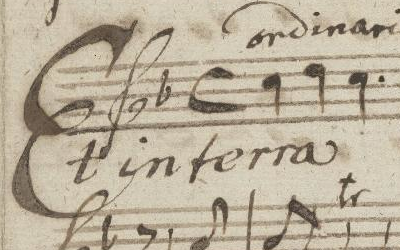 ordinari
Et in terra
tr